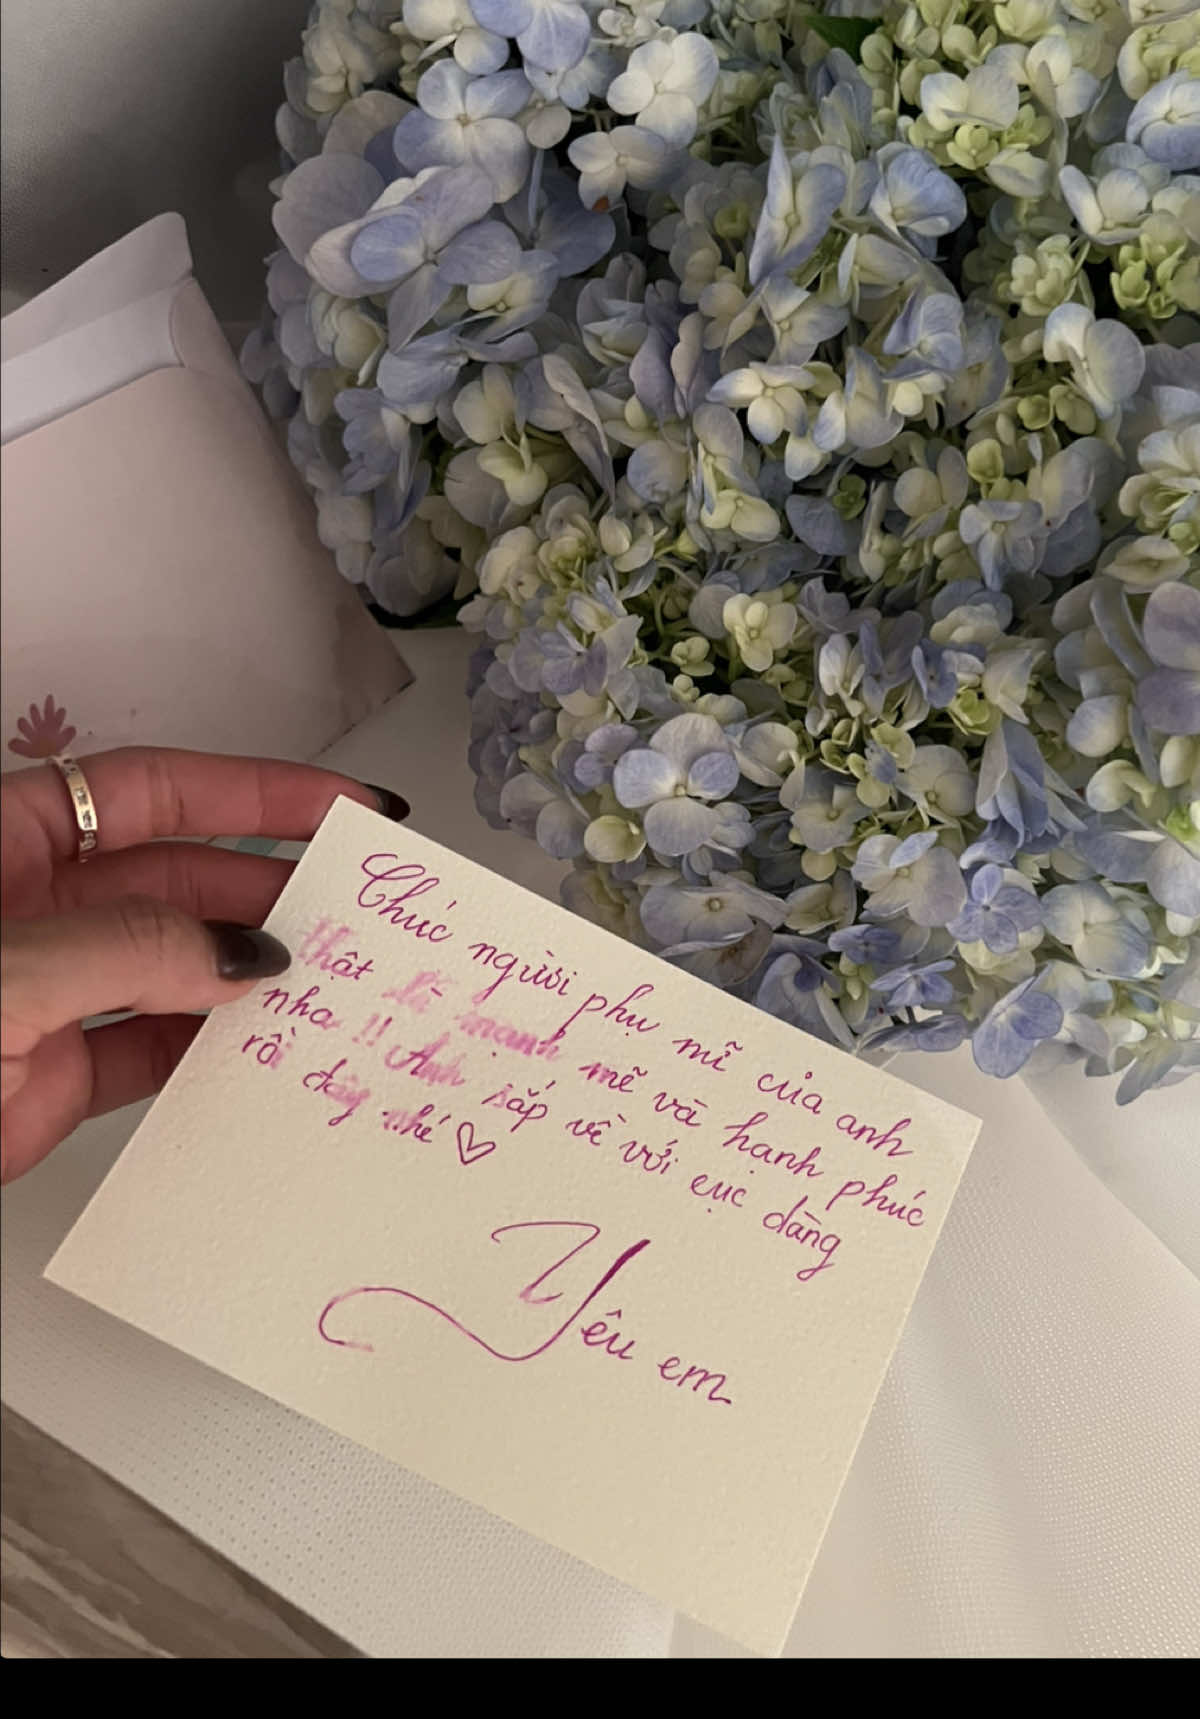 Chúc người phụ mĩ của anh
thật là mạnh mẽ và hạnh phúc
nha !! Anh sắp về với cục dàng
rồi đây nhé ♡
Yêu em